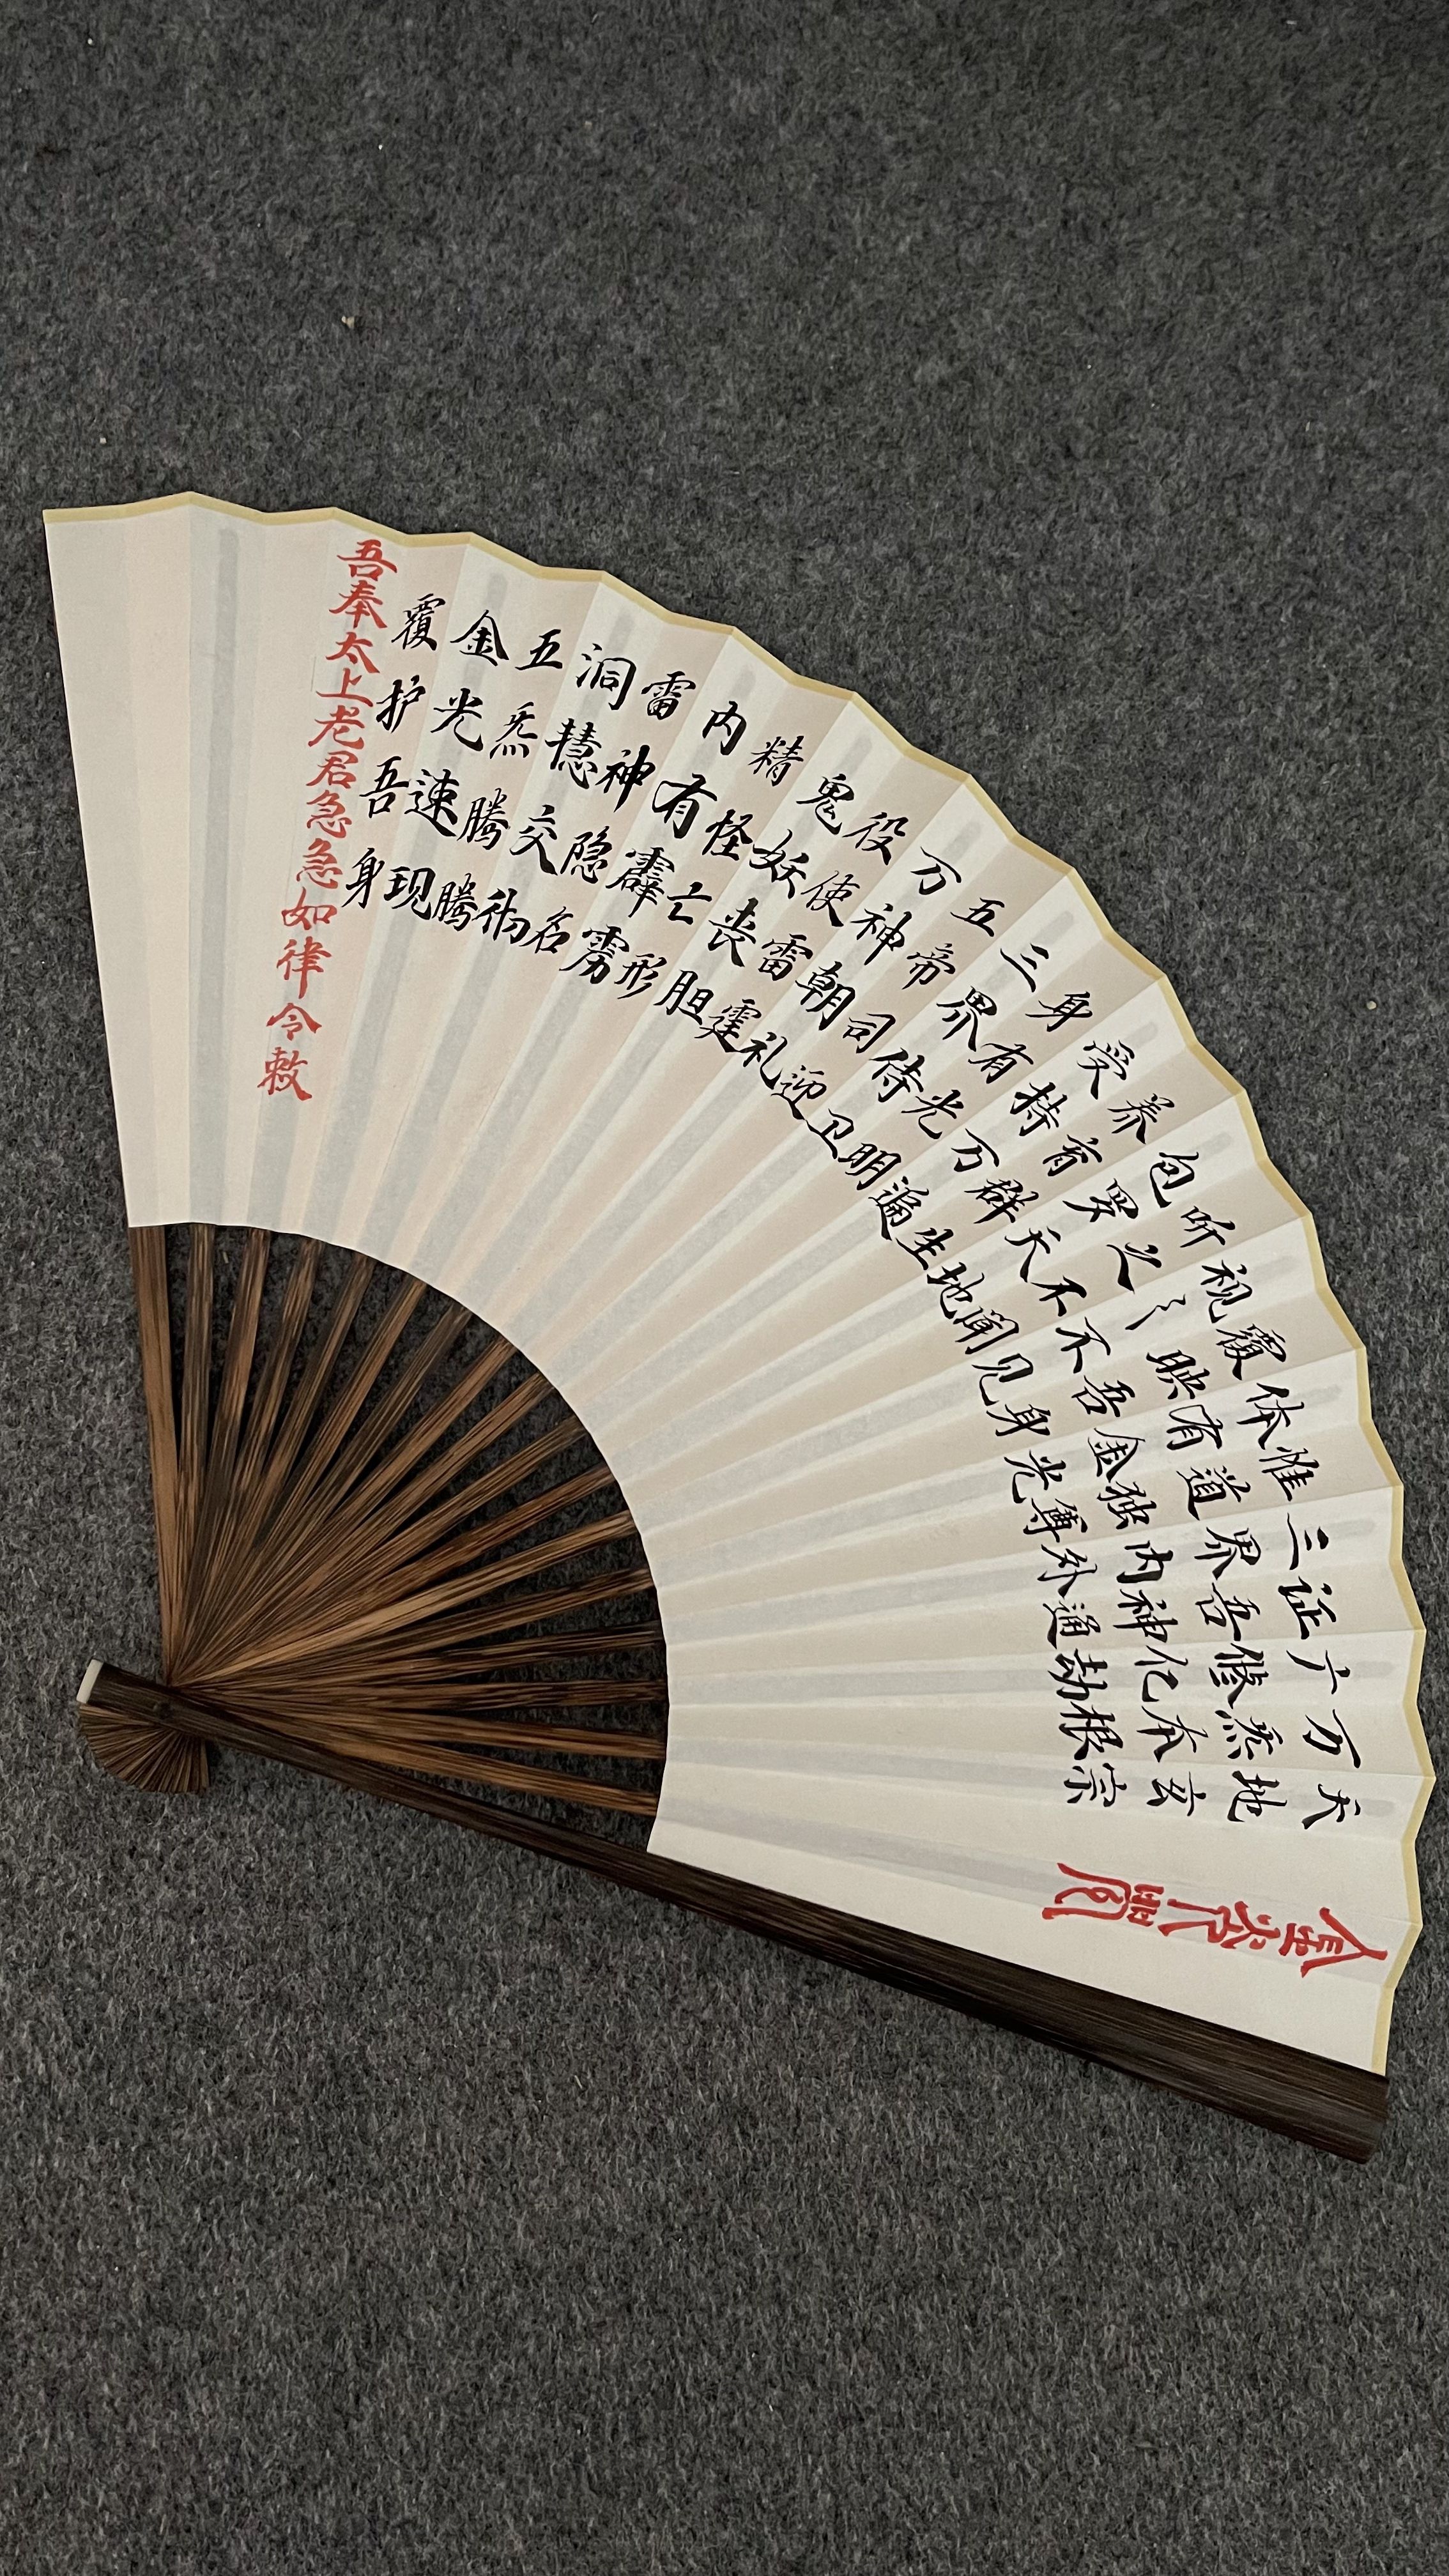 天地玄宗
万炁本根
广修亿劫
证吾神通
三界内外
惟道独尊
体有金光
覆映吾身
视之不见
听之不闻
包罗天地
养育群生
受持万遍
身有光明
三界侍卫
五帝司迎
万神朝礼
役使雷霆
鬼妖丧胆
精怪亡形
内有霹雳
雷神隐名
洞慧交彻
五炁腾腾
金光速现
覆护吾身
吾奉太上老君急急如律令敕